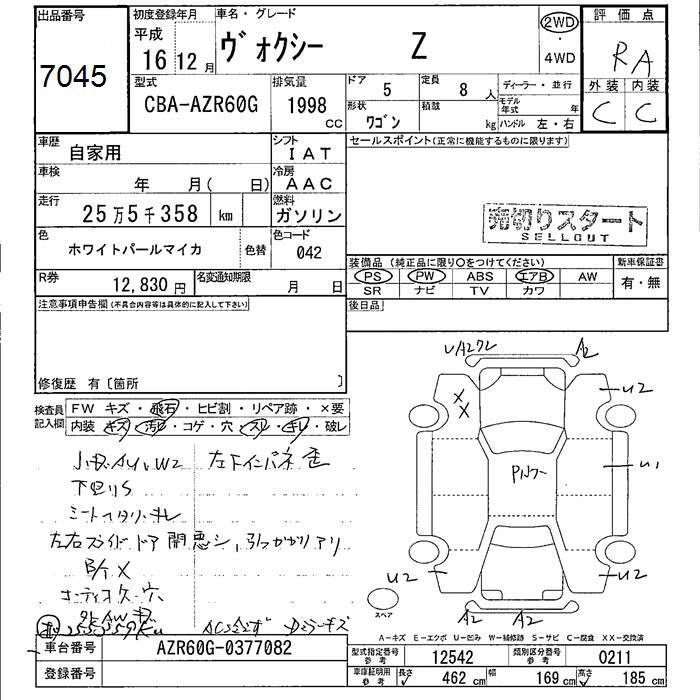 出品番号
7045
初度登録年月
平成
16年12月
車名・グレード
ヴォクシー Z
2WD
4WD
評価点
RA
外装 内装
C C
型式
CBA-AZR60G
排気量
1998
CC
ドア
5
定員
8人
ディーラー・並行
形状
ワゴン
積載
kg
モデル年式 年
ハンドル 左・右
車歴
自家用
シフト
IAT
車検
年 月( 日)
冷房
AAC
走行
25万5千358 km
燃料
ガソリン
色
ホワイトパールマイカ
色替
色コード
042
R券
12,830円
名変通知期限
月 日
セールスポイント(正常に機能するものに限ります)
売切りスタート
SELLOUT
装備品(純正品に限り〇をつけてください)
PS PW ABS エアB AW
SR ナビ TV カワ
新車保証書
有・無
後日品
注意事項申告欄(不具合内容等は具体的に記入して下さい)
修復歴 有〔箇所 〕
検査員記入欄
FW キズ・飛石・ヒビ割・リペア跡・×要
内装 キズ・汚レ・コゲ・穴・スレ・キレ・破レ
下回りS
左右スライドドア開悪シ、引っかかりアリ
A2
U2
U1
U2
U2
A2 A2
スペア
A-キズ E-エクボ U-凹み W-補修跡 S-サビ C-腐食 XX-交換済
車台番号
AZR60G-0377082
登録番号
型式指定番号
参考
12542
類別区分番号
参考
0211
車庫証明用
参考
長さ
462 cm
幅
169 cm
高さ
185 cm